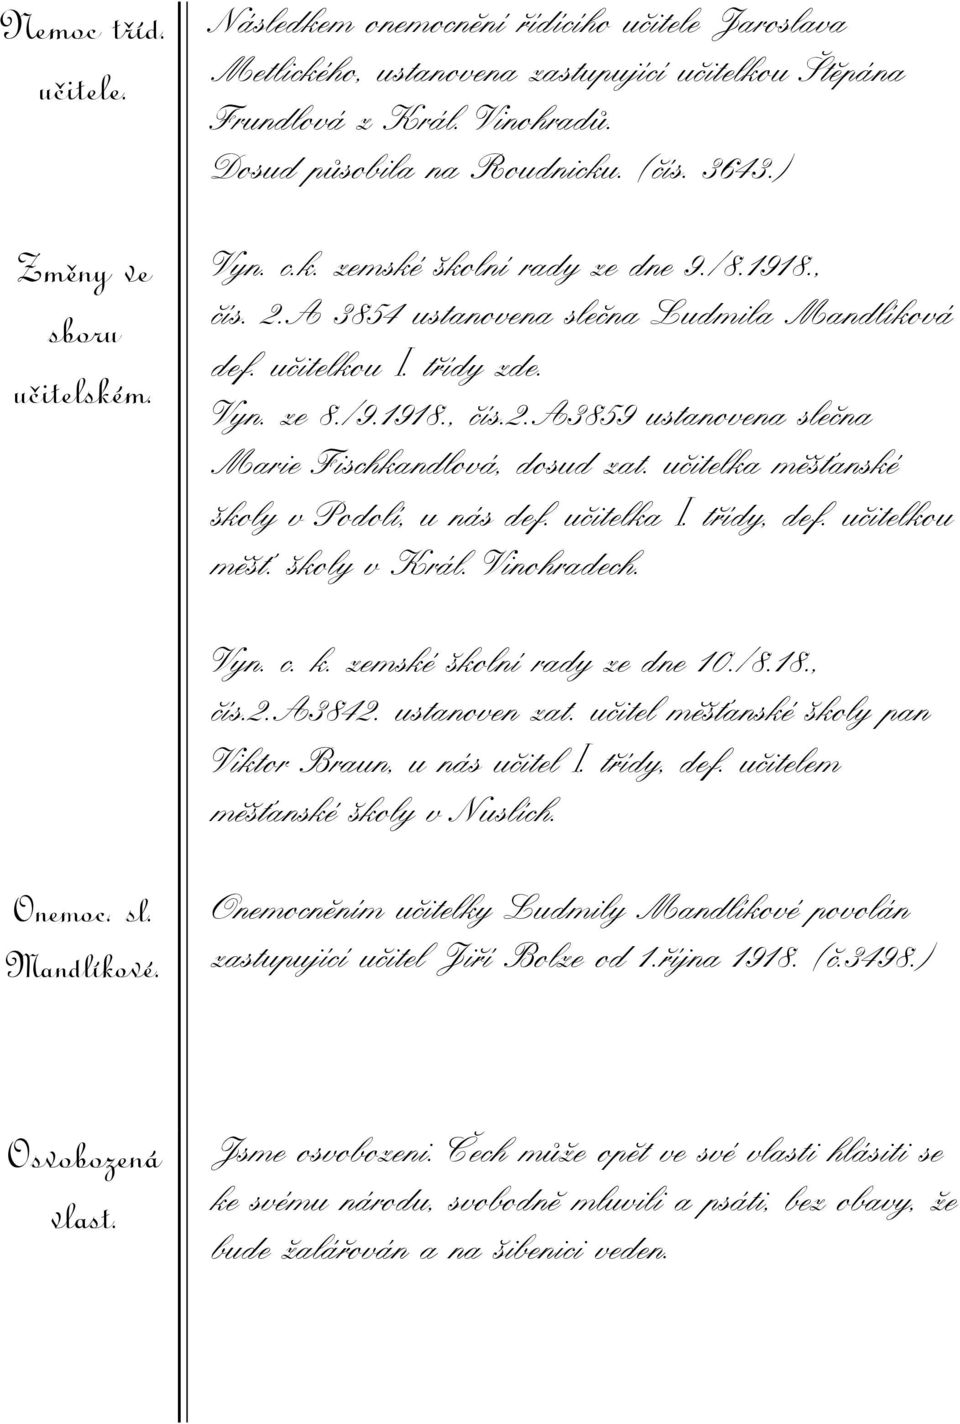 Nemoc tříd.
učitele.
Následkem onemocnění řídícího učitele Jaroslava
Metlického, ustanovena zastupující učitelkou Štěpána
Frundlová z Král. Vinohradů.
Dosud působila na Roudnicku. (čís. 3643.)
Změny ve
sboru
učitelském.
Vyn. c.k. zemské školní rady ze dne 9./8.1918.,
čís. 2.A 3854 ustanovena slečna Ludmila Mandlíková
def. učitelkou I. třídy zde.
Vyn. ze 8./9.1918., čís.2.A3859 ustanovena slečna
Marie Fischkandlová, dosud zat. učitelka měšťanské
školy v Podolí, u nás def. učitelka I. třídy, def. učitelkou
měšť. školy v Král. Vinohradech.
Vyn. c. k. zemské školní rady ze dne 10./8.18.,
čís.2.A3842. ustanoven zat. učitel měšťanské školy pan
Viktor Braun, u nás učitel I. třídy, def. učitelem
měšťanské školy v Nuslích.
Onemoc. sl.
Mandlíkové.
Onemocněním učitelky Ludmily Mandlíkové povolán
zastupující učitel Jiří Bolze od 1.října 1918. (č.3498.)
Osvobozená
vlast.
Jsme osvobozeni. Čech může opět ve své vlasti hlásiti se
ke svému národu, svobodně mluvili a psáti, bez obavy, že
bude žalářován a na šibenici veden.